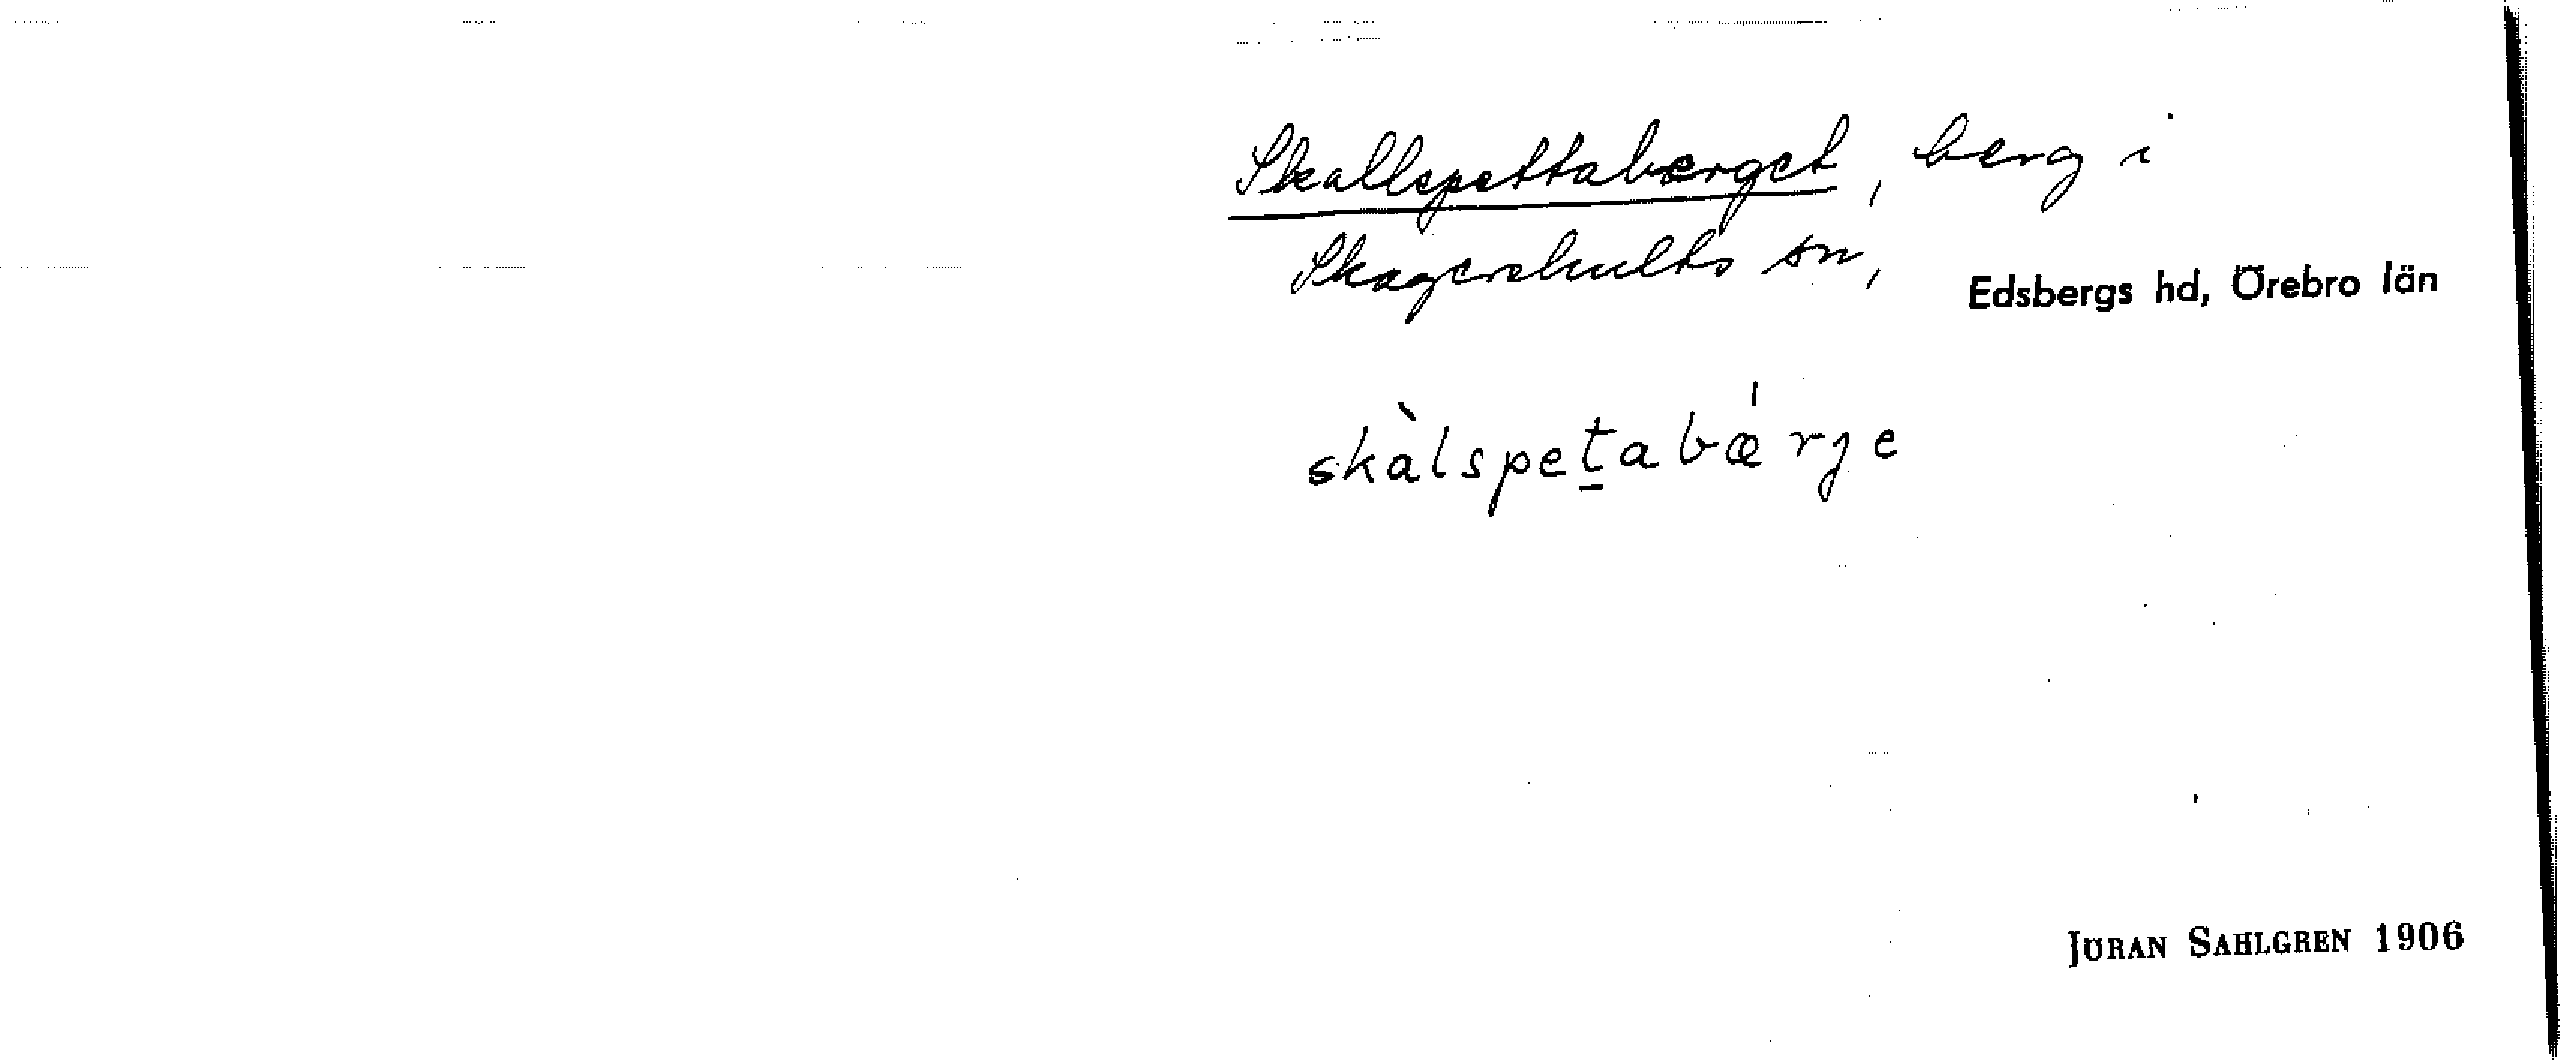 Skallspettaberget, berg i
Skagershults sn, Edsbergs hd, Örebro län
skàlspetabǽrje
JÖRAN SAHLGREN 1906